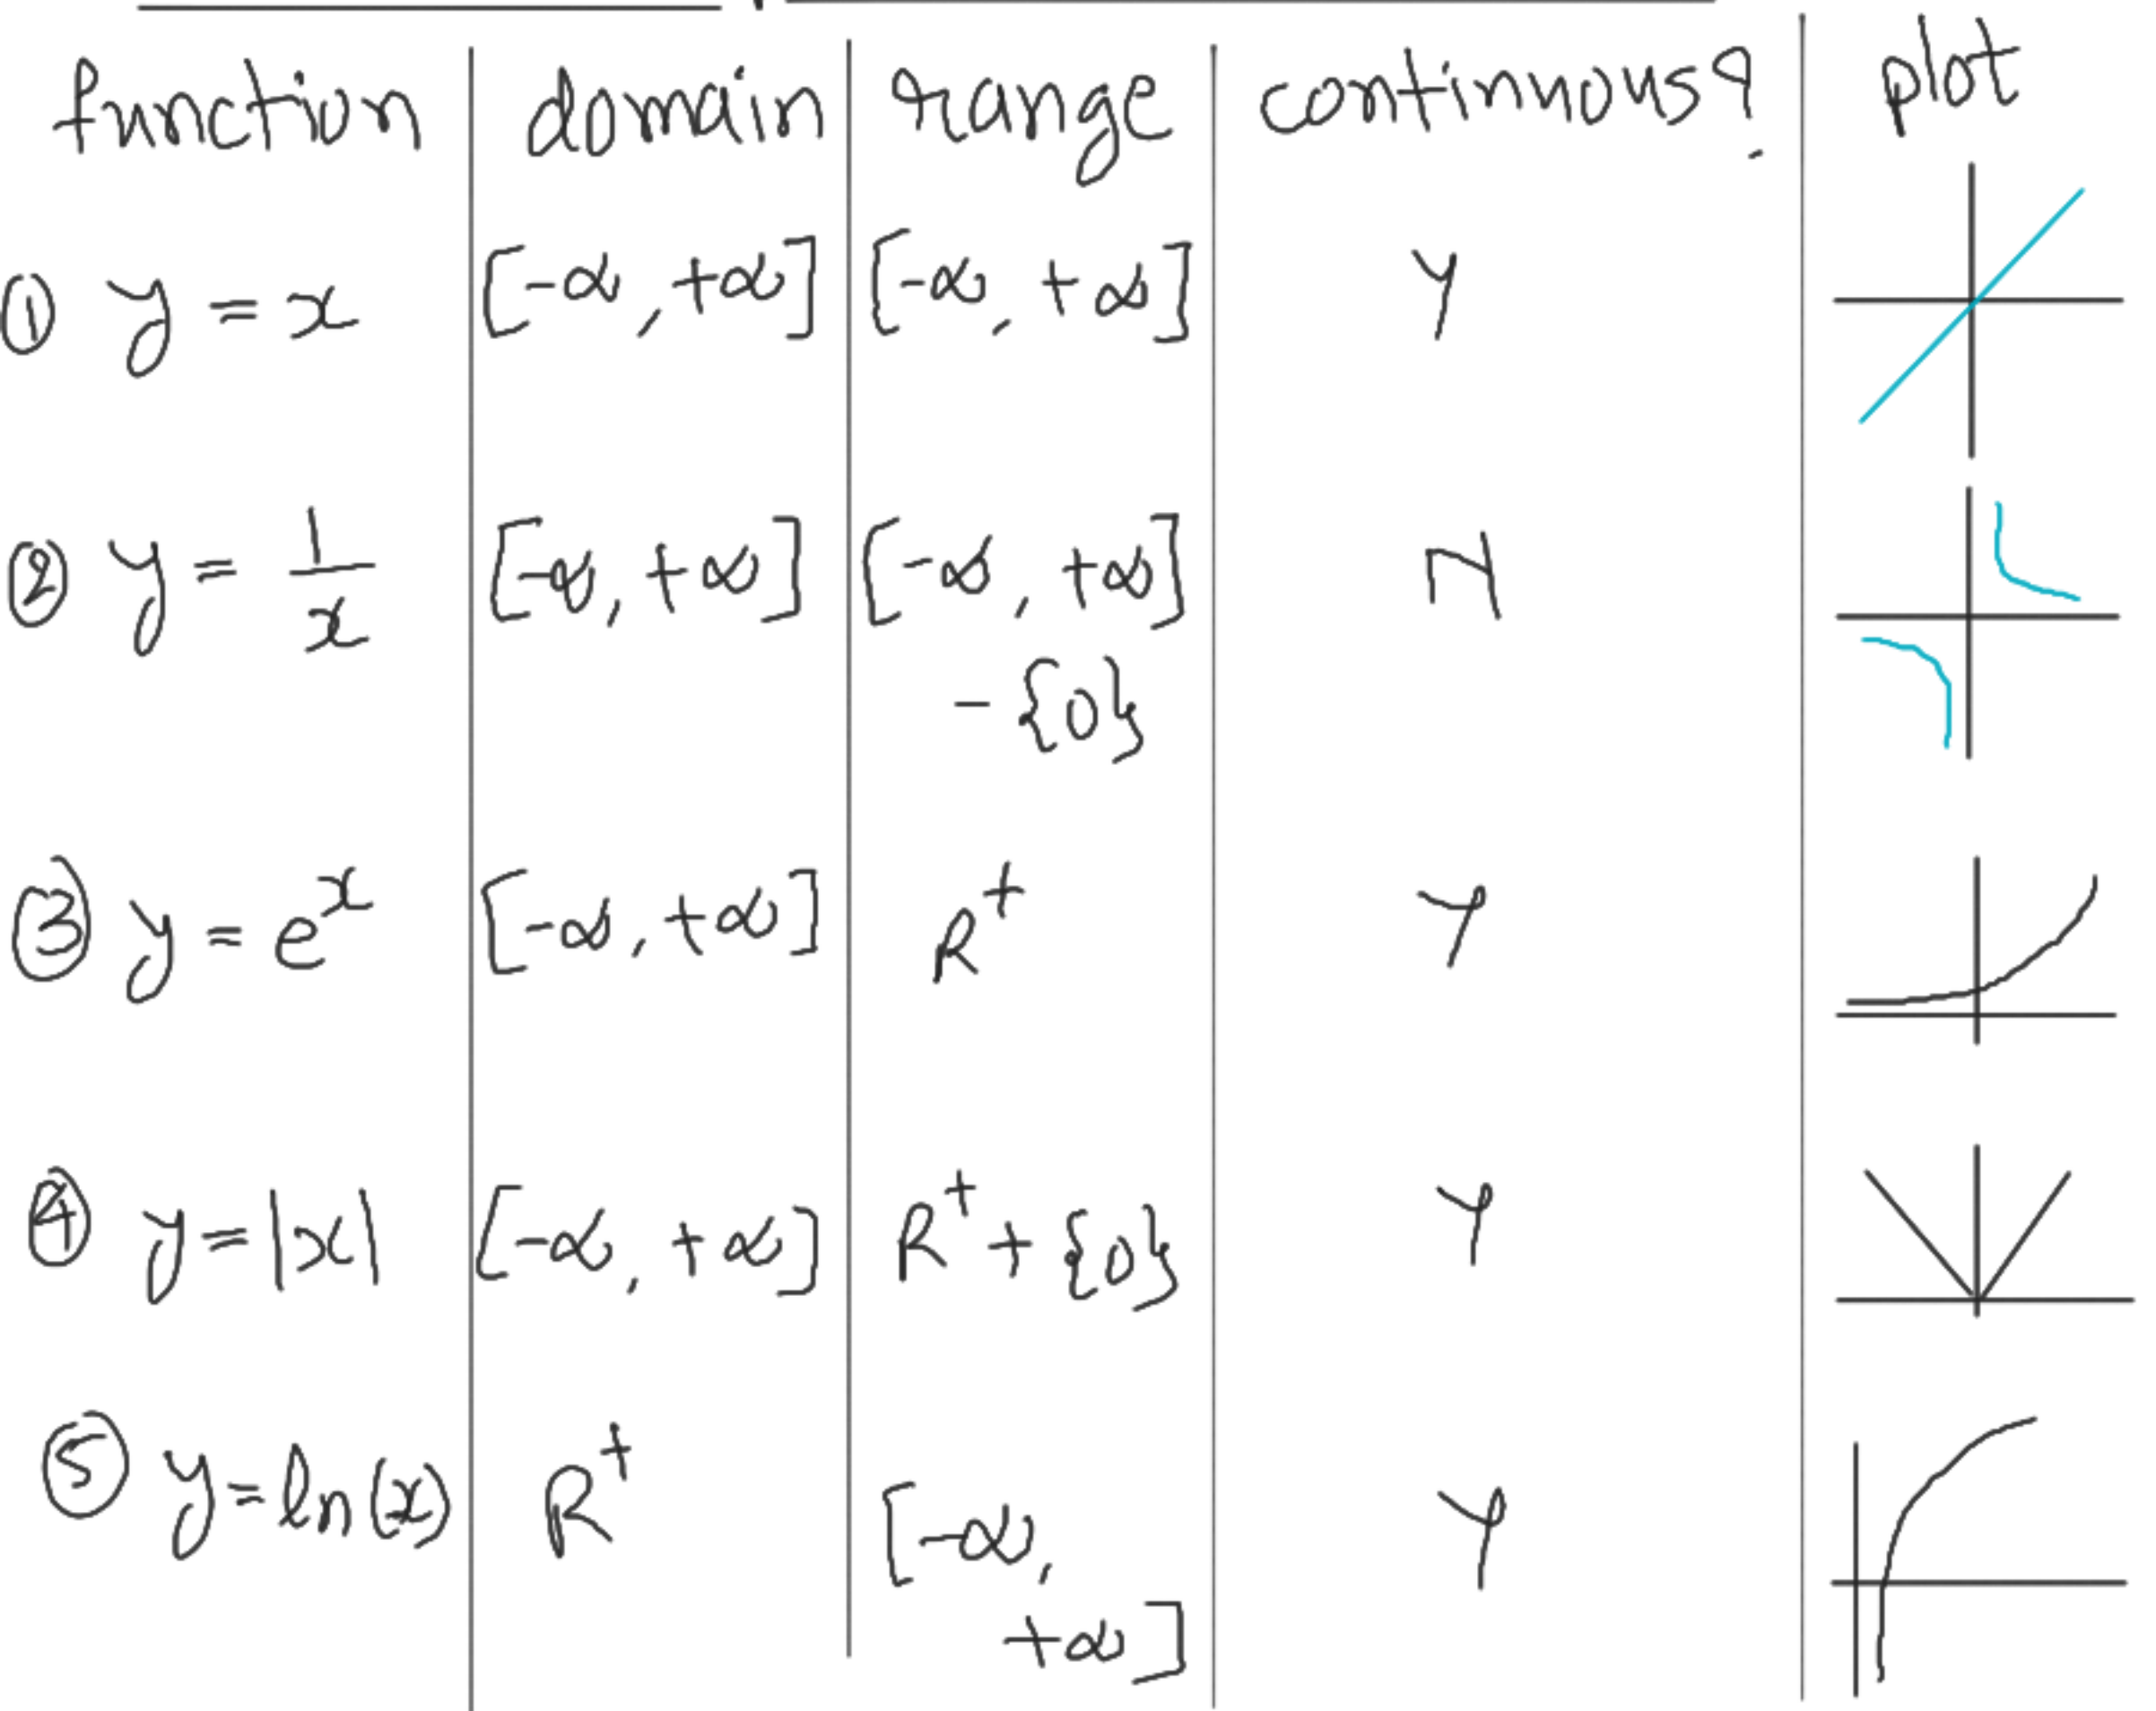 function domain range continuous? plot
① y = x [-∞, +∞] [-∞, +∞] Y
② y = 1/x [-∞, +∞] [-∞, +∞] N
- {0}
③ y = e^x [-∞, +∞] R^+ Y
④ y = |x| [-∞, +∞] R^+ + {0} Y
⑤ y = ln(x) R^+ [-∞, Y
+∞]